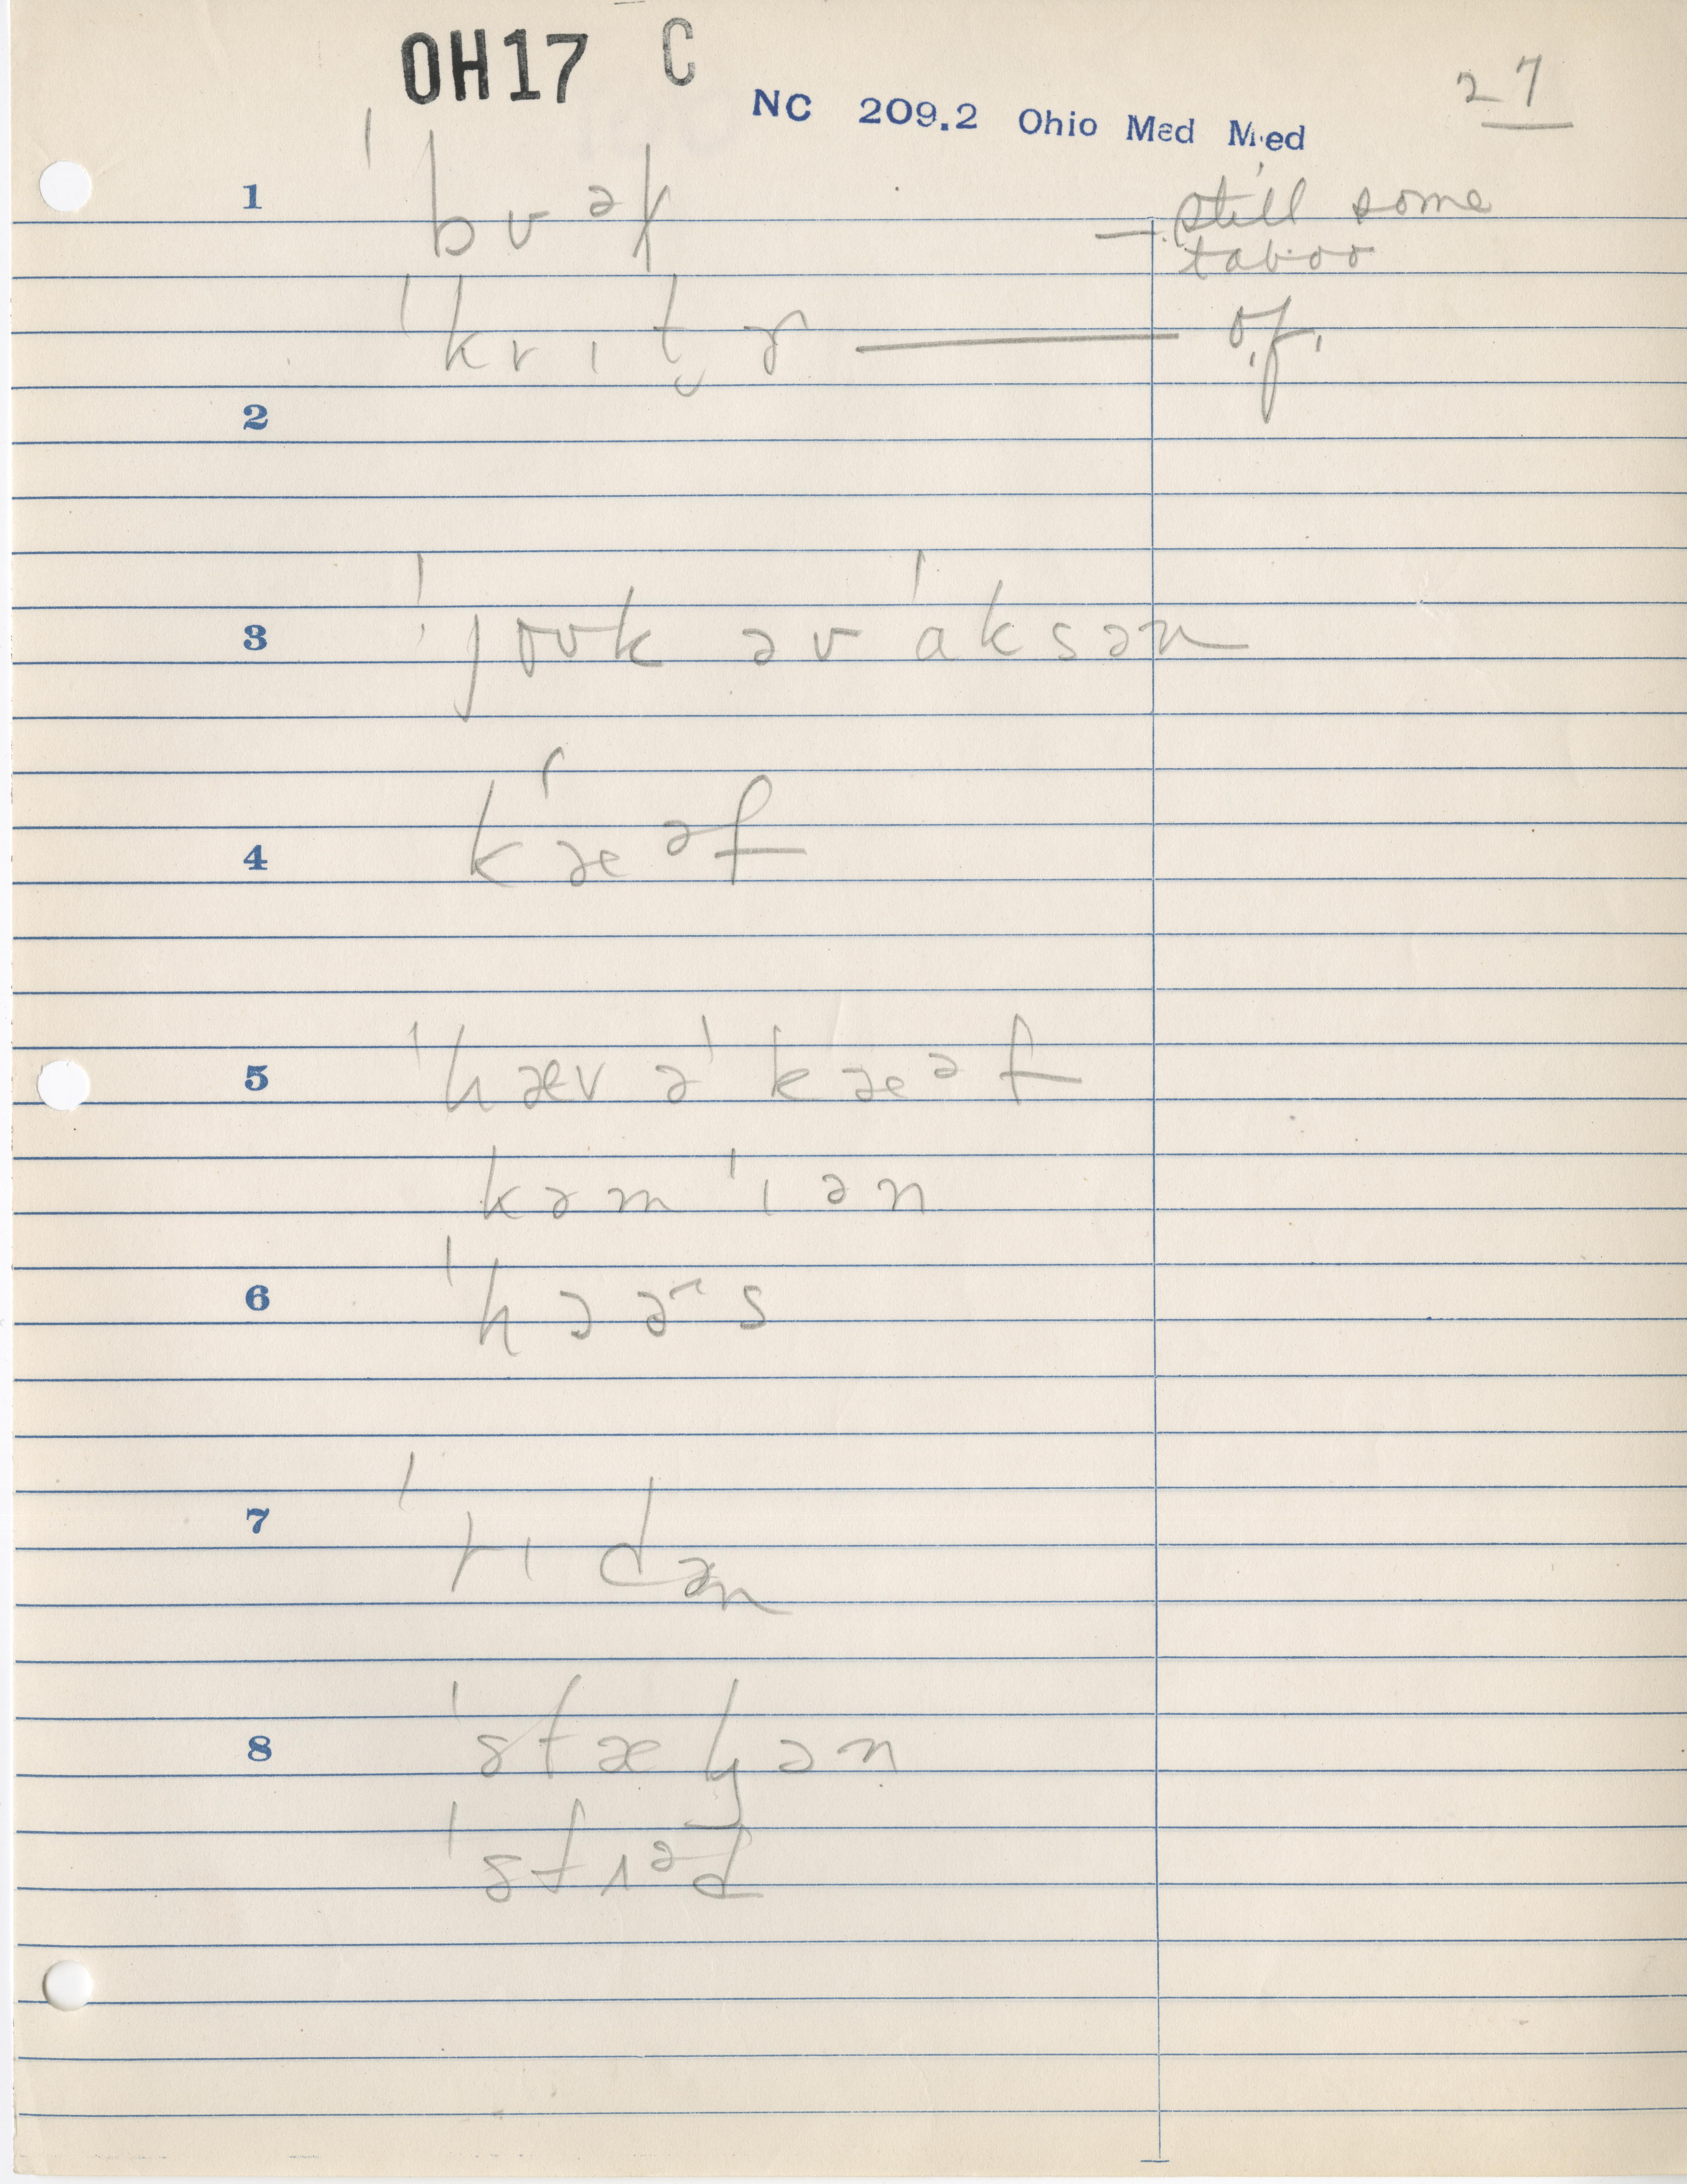 OH17 C
NC 209.2 Ohio Med Med
27
1 ˈbʊᵊl — still some
taboo
ˈkrɪt̬ɚ — o.f.
2
3 ˈjoʊk əv ˈɑksən
4 kˈæᵊf
5 ˈhæv ə ˈkæᵊf
kəmˈɪən
6 ˈhɔɚs
7 ˈrɪdən
8 ˈstæljən
ˈstɪᵊd